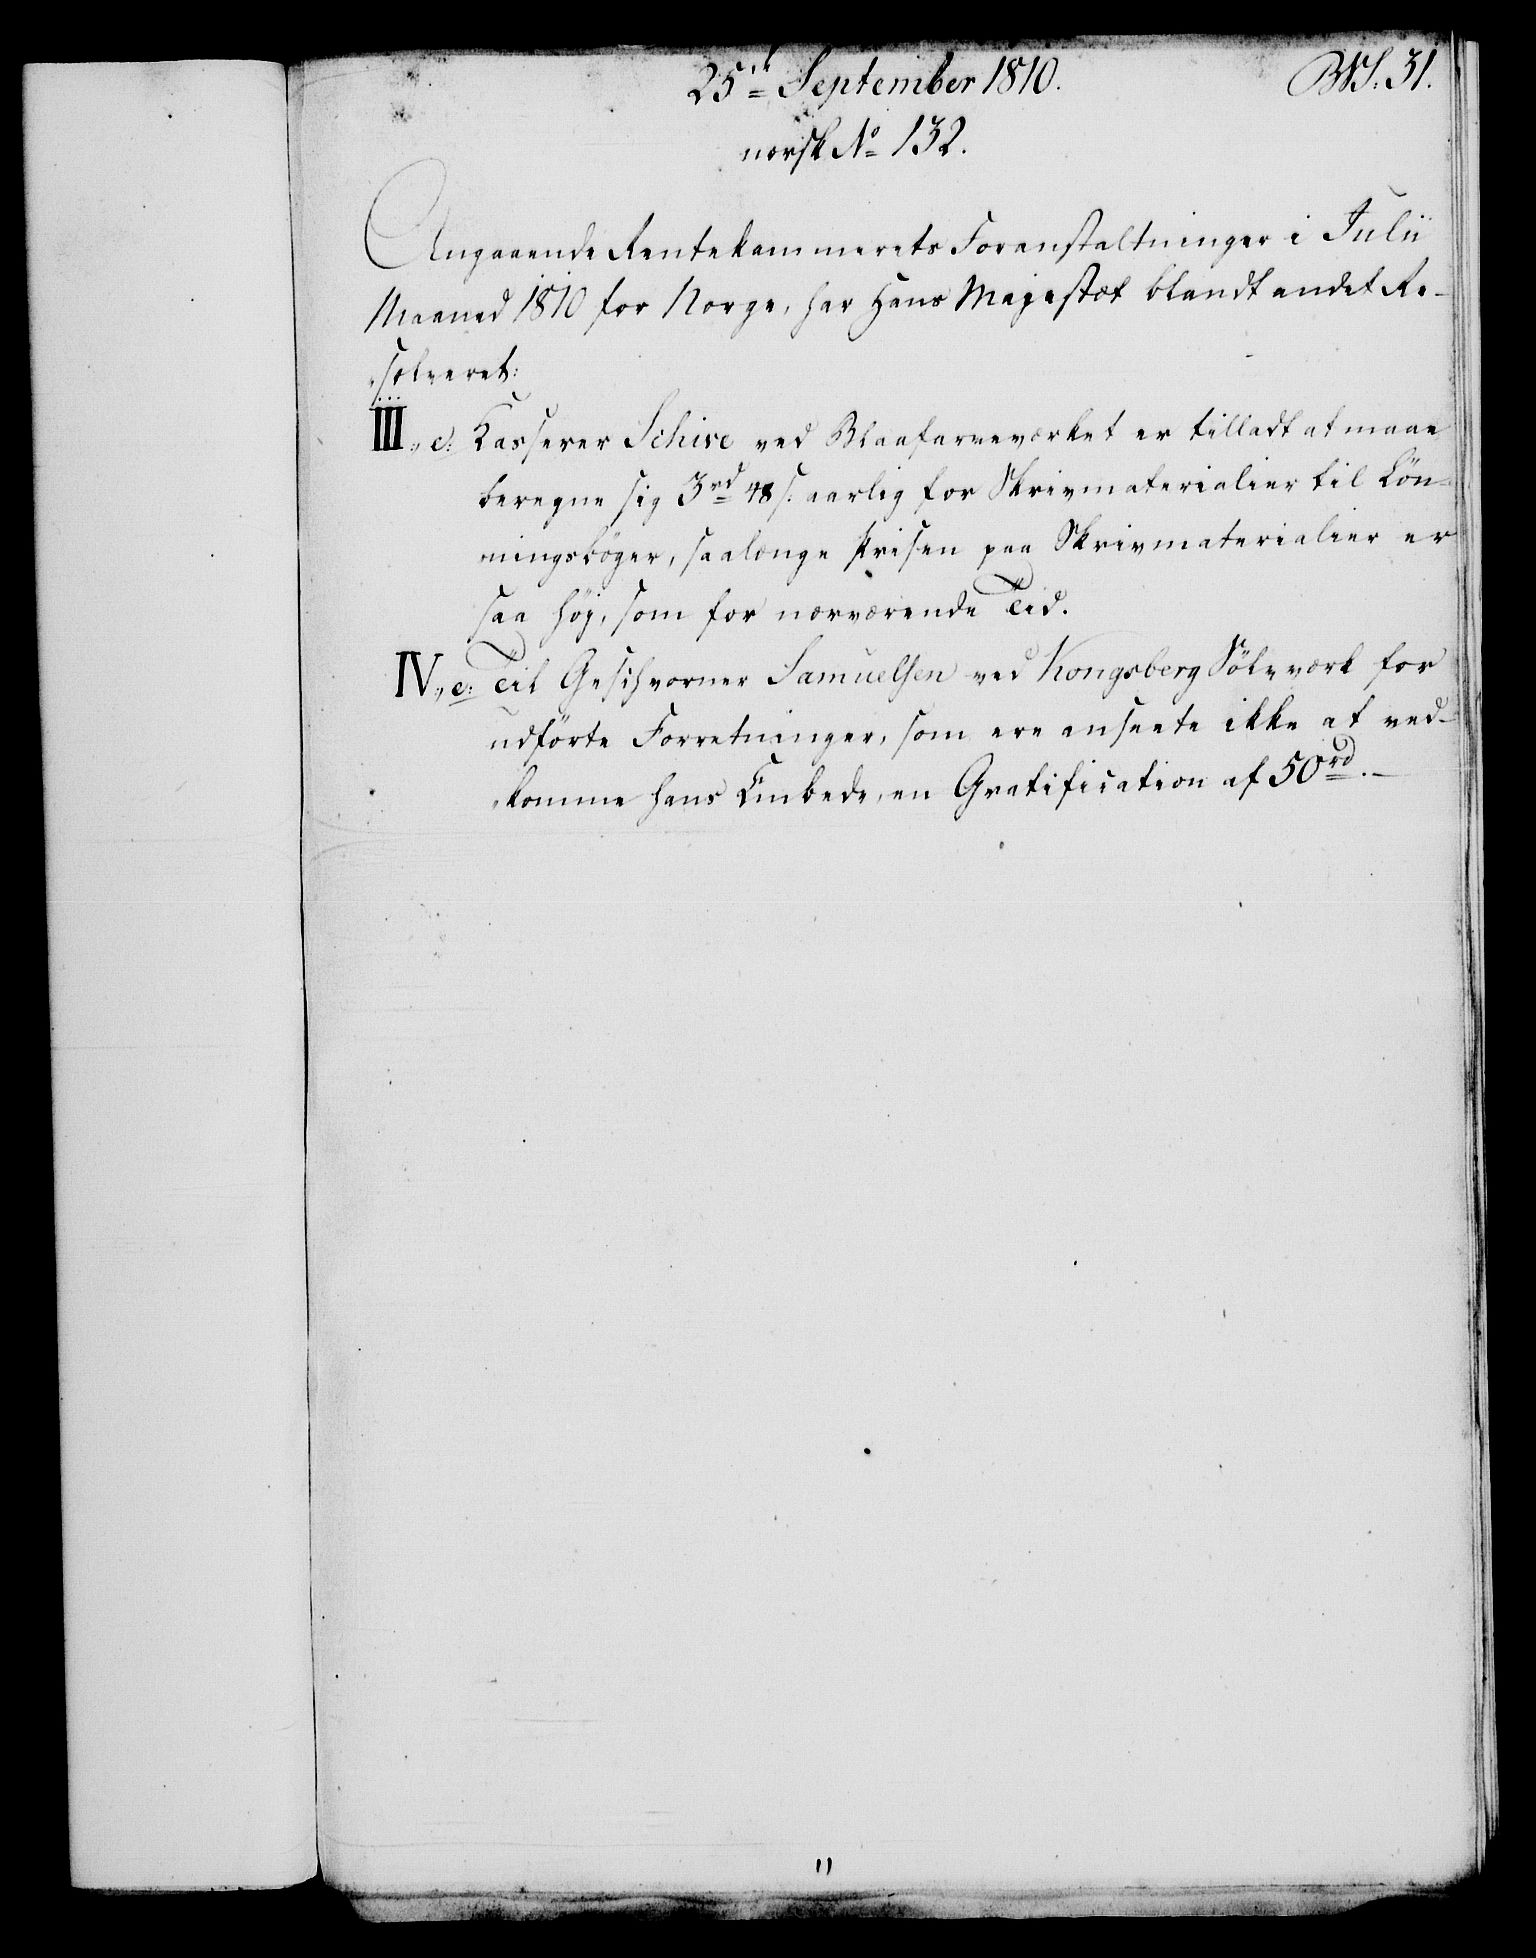 25de September 1810.
BWS. 31.
norsk No 132.
Angaaende Rentekammerets Foranstaltninger i Julii
Maaned 1810 for Norge, har Hans Majestæt blandt andet Re-
solveret:
III., c: Kasserer Schive ved Blaafarveværket er tilladt at maae
beregne sig 3rd 48 s. aarlig for Skrivmaterialier til Lön-
ningsböger, saalænge Prisen paa Skrivmaterialier er
saa höj, som for nærværende Tid.
IV., c: Til Geschvorner Samuelsen ved Kongsberg Sölvværk for
udförte Forretninger, som ere ansete ikke at ved-
komme hans Embede, en Gratification af 50rd.-
11